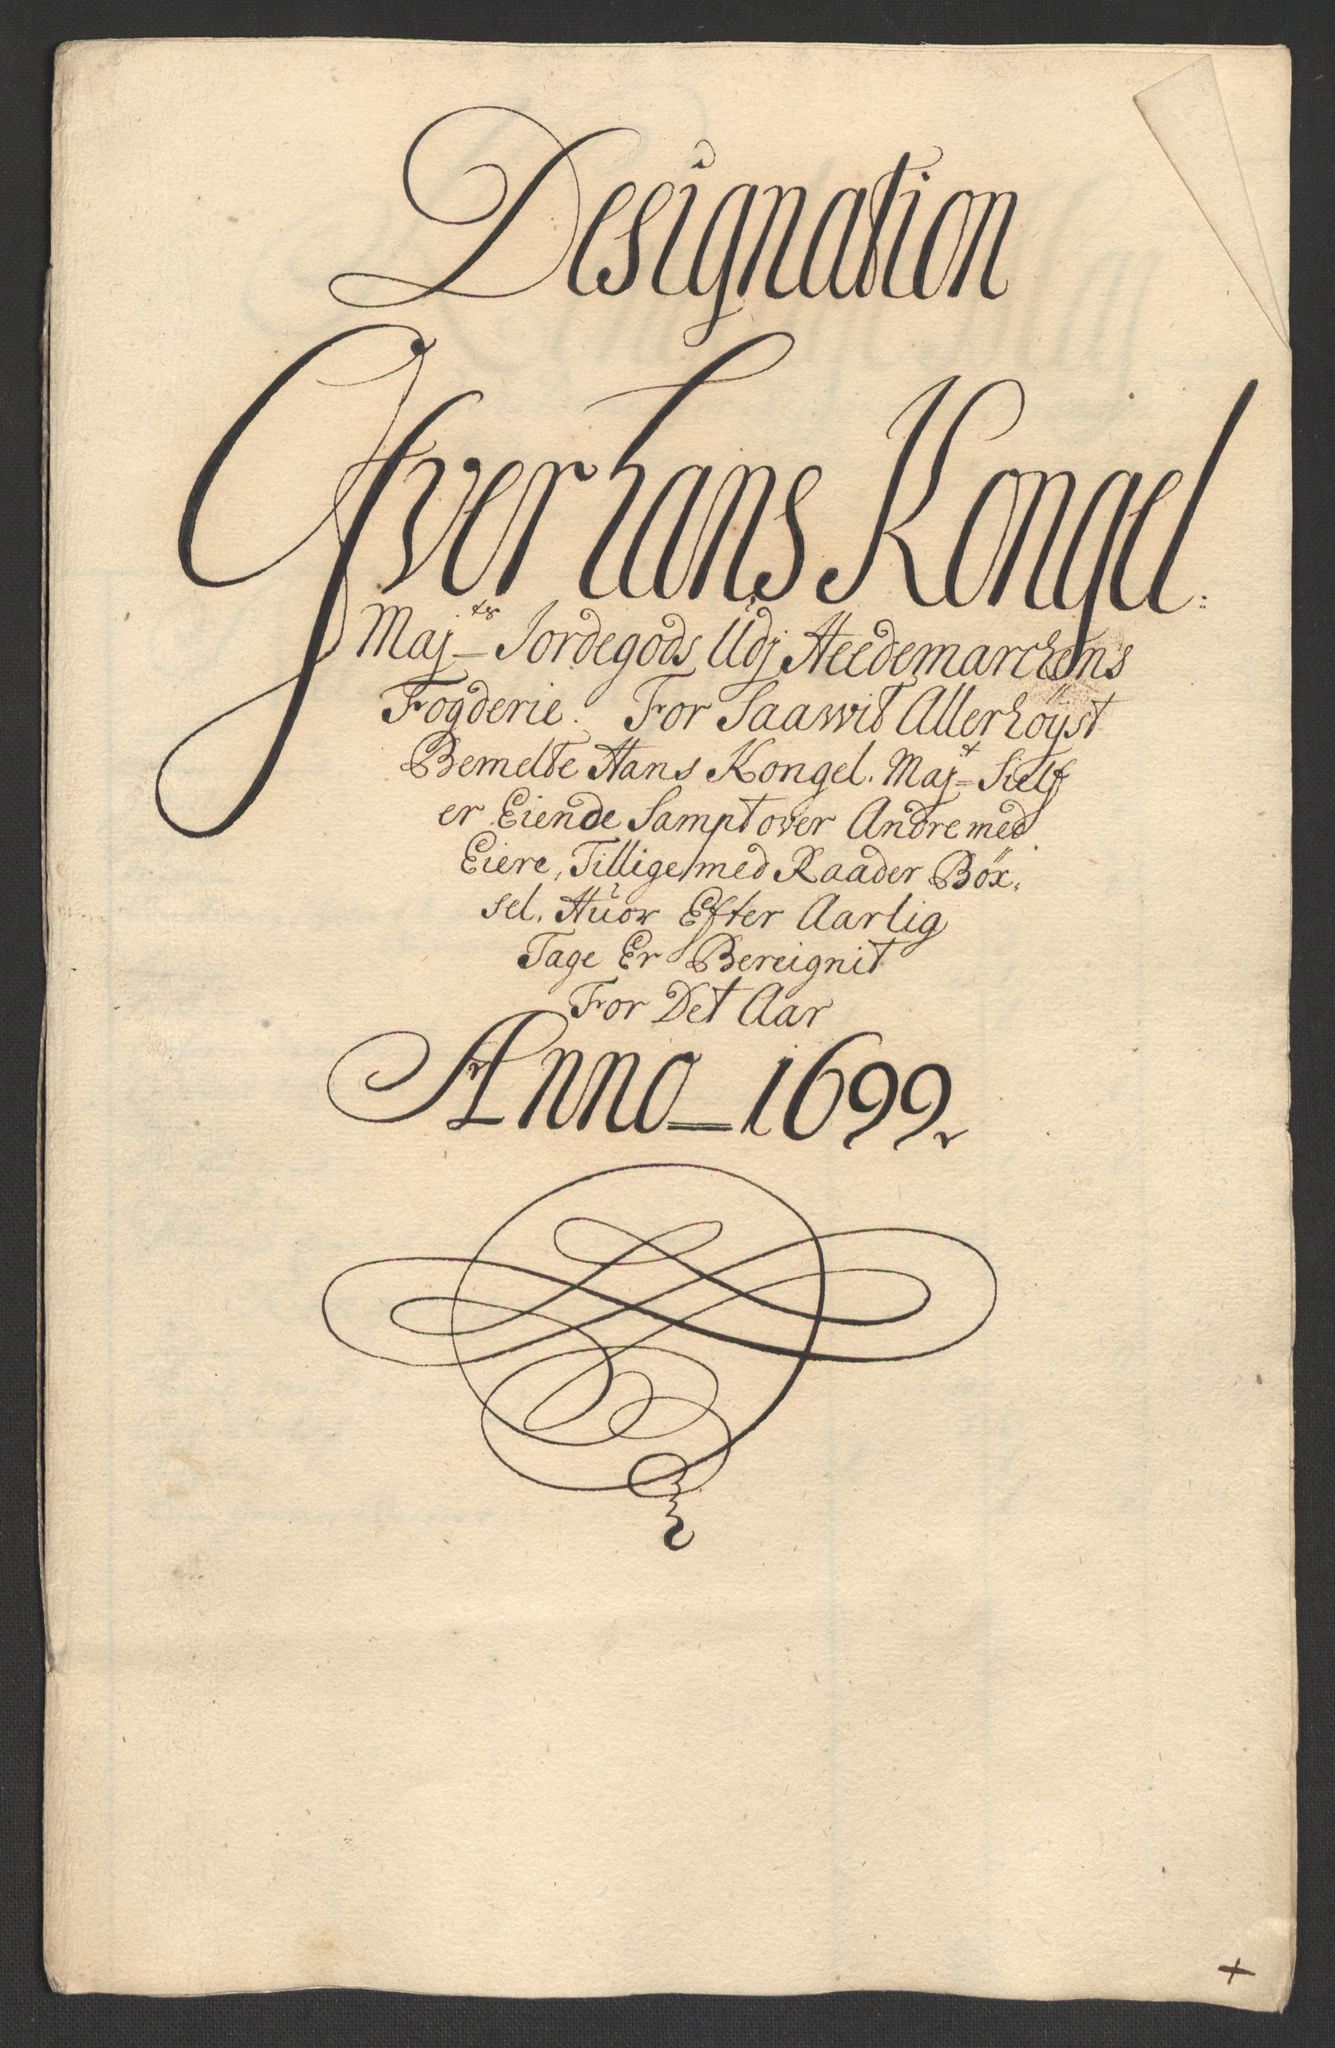 Designation
Ofver hans Kongel:
Maj^ts Jordegods Udj Heedemarchens
Fogderie. For Saawit Allerhöyst
Bemelte Hans Kongel. Maj^t Sielf
er Eiende Sampt over Andre med
Eiere, Tillige med Raader Böx,
sel. Huor Efter Aarlig
Tage Er Bereignit
For Det Aar
Anno 1699